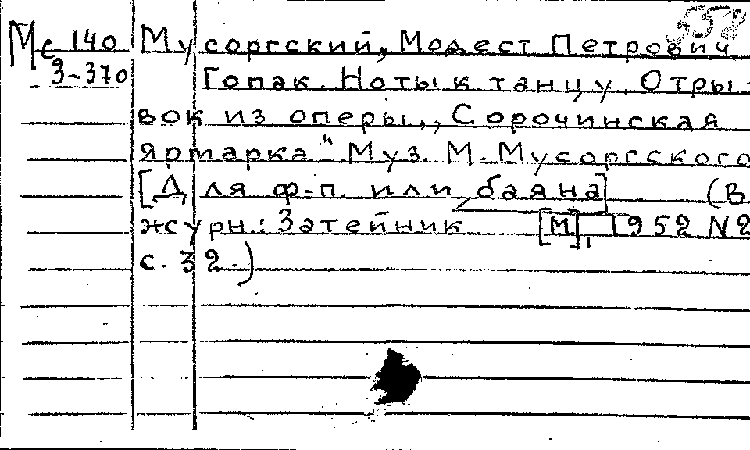 Мс 140 Мусоргский, Модест Петрович
3-370 Гопак. Ноты к танцу. Отры-
вок из оперы „Сорочинская
ярмарка" Муз. М. Мусоргского
[Для ф-п. или баяна] (В
журн.: Затейник [М], 1952 N2
с. 32.)